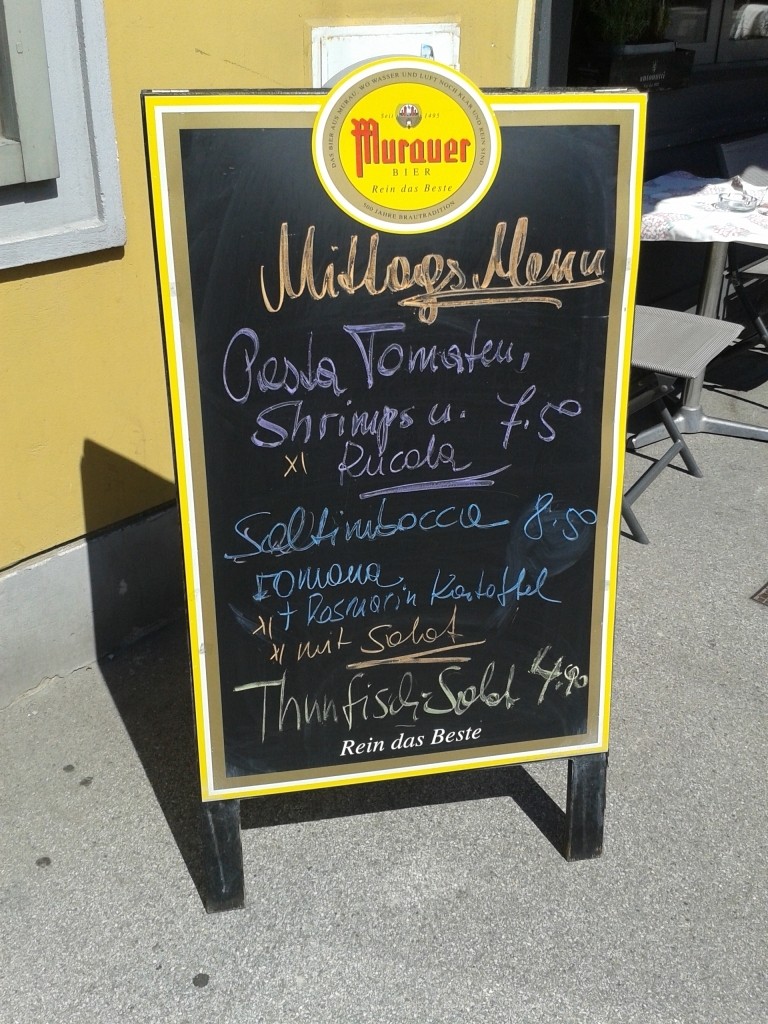 DAS BIER AUS MURAU, WO WASSER UND LUFT NOCH KLAR UND REIN SIND
Seit 1495
Murauer
BIER
Rein das Beste
500 JAHRE BRAUTRADITION
Mittags Menu
Pasta Tomaten,
Shrimps u. 7.50
x) Rucola
Saltimbocca 8.50
romana
+ Rosmarin Kartoffel
x) mit Salat
Thunfisch-Salat 4.90
Rein das Beste